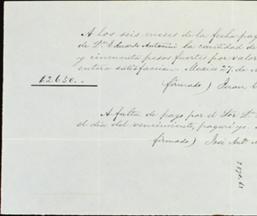 A los seis meses de la fecha pag
de Dn. Eduardo la cantidad de
y cincuenta pesos fuertes por valor
entera satisfaccion. Mexico 27, de
firmado) Juan
$2.650.
A falta de pago por el Sor. Dn.
el dia del vencimiento, pagaré yo.
firmado) José Ant.